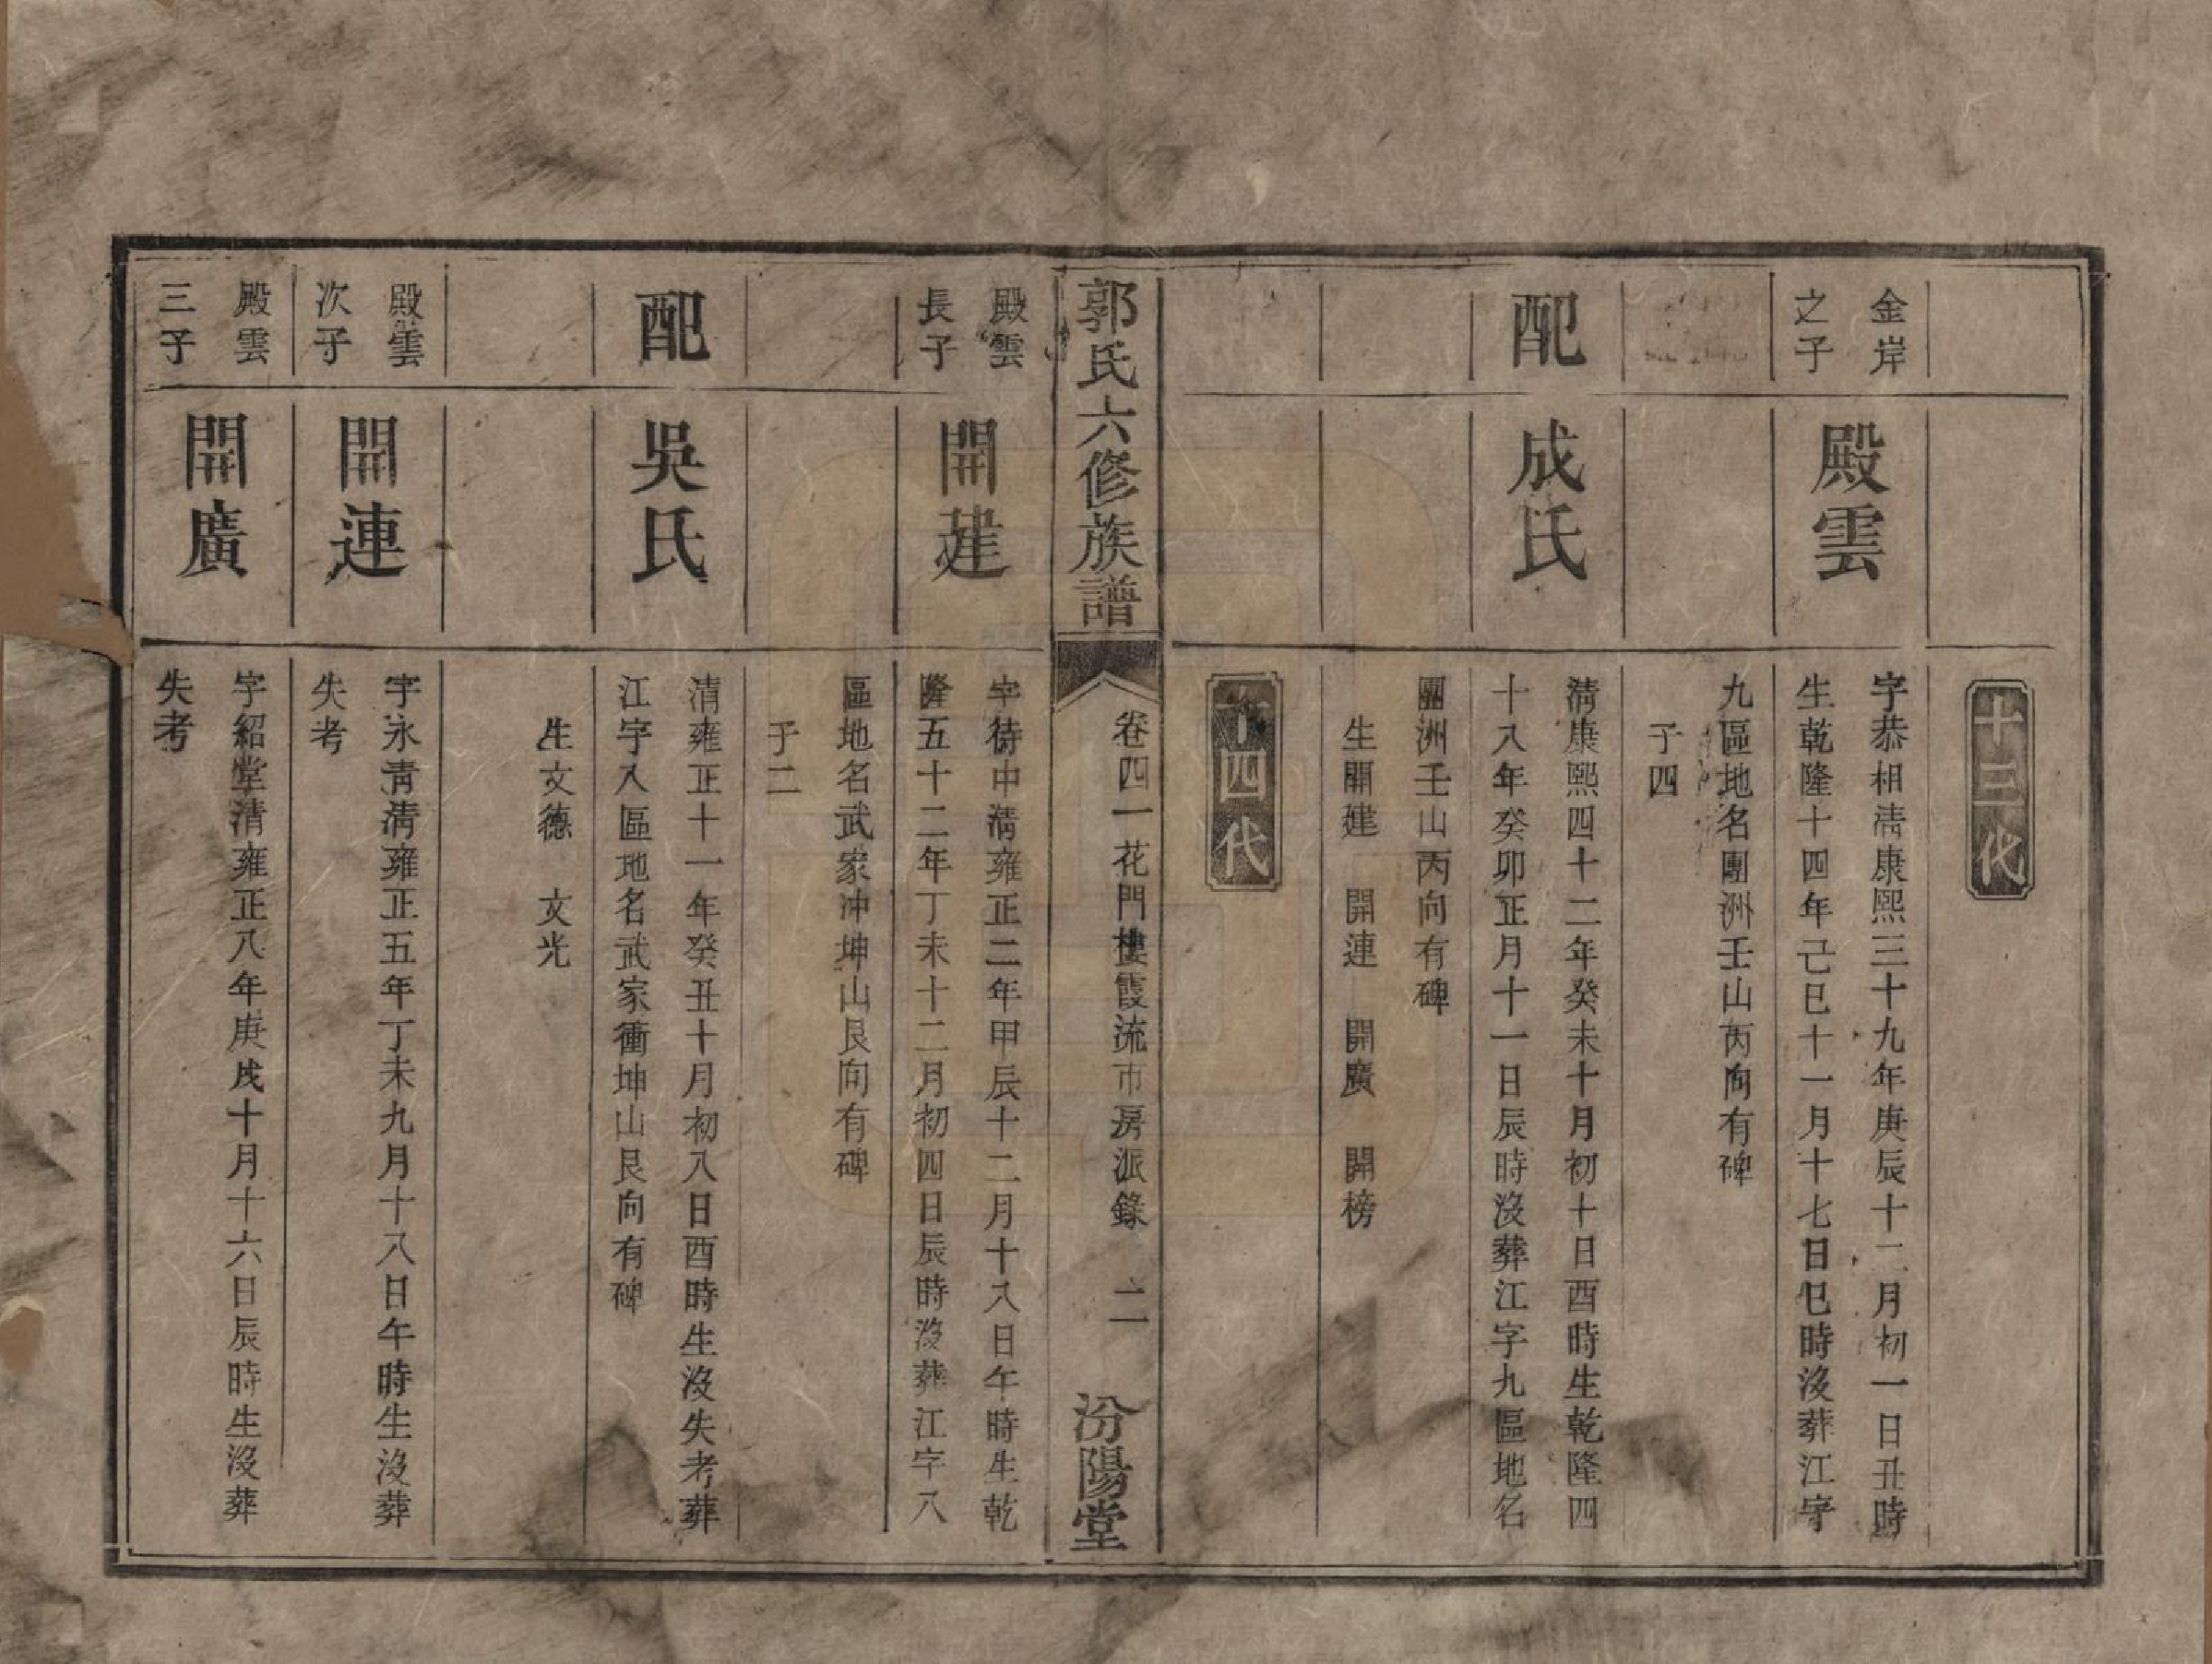 十三代
金岸
之子
殿雲
字恭相清康熙三十九年庚辰十二月初一日丑時
生乾隆十四年己巳十一月十七日巳時没葬江字
九區地名團洲壬山丙向有碑
子四
配
成氏
清康熙四十二年癸未十月初十日酉時生乾隆四
十八年癸卯正月十一日辰時没葬江字九區地名
團洲壬山丙向有碑
生開建 開連 開廣 開榜
十四代
郭氏六修族譜
卷四一花門樓霞流市房派錄 二
汾陽堂
殿雲
長子
開建
字待中清雍正二年甲辰十二月十八日午時生乾
隆五十二年丁未十二月初四日辰時没葬江字八
區地名武家冲坤山艮向有碑
子二
配
吳氏
清雍正十一年癸丑十月初八日酉時生没失考葬
江字八區地名武家衝坤山艮向有碑
生文德 文光
殿雲
次子
開連
字永青清雍正五年丁未九月十八日午時生没葬
失考
殿雲
三子
開廣
字紹堂清雍正八年庚戌十月十六日辰時生没葬
失考